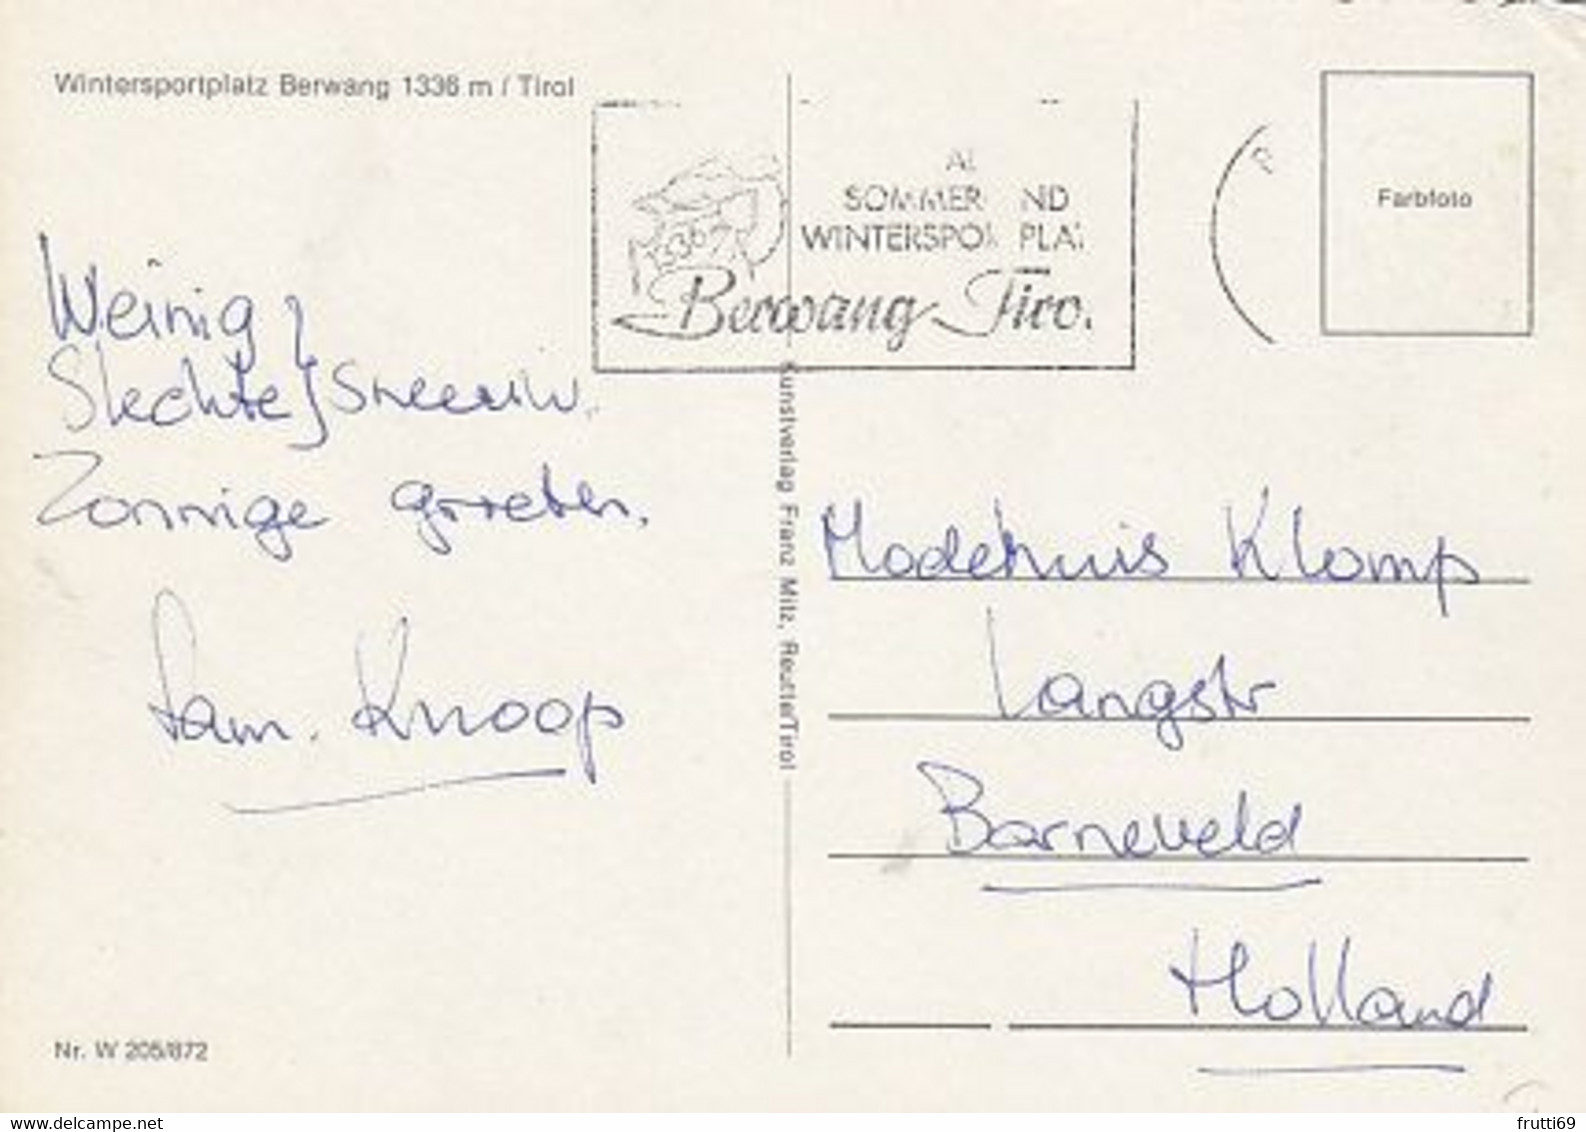 Wintersportplatz Berwang 1336 m / Tirol
SOMMER ND
WINTERSPOR PLAT
Berwang Tiro
Farbfoto
Weinig }
Slechte } sneeuw.
Zonnige groeten.
Fam. Knoop
Kunstverlag Franz Milz, Reutte/Tirol
Modehuis Klomp
Langstr
Barneveld
Holland
Nr. W 205/872
www.delcampe.net
frutti69